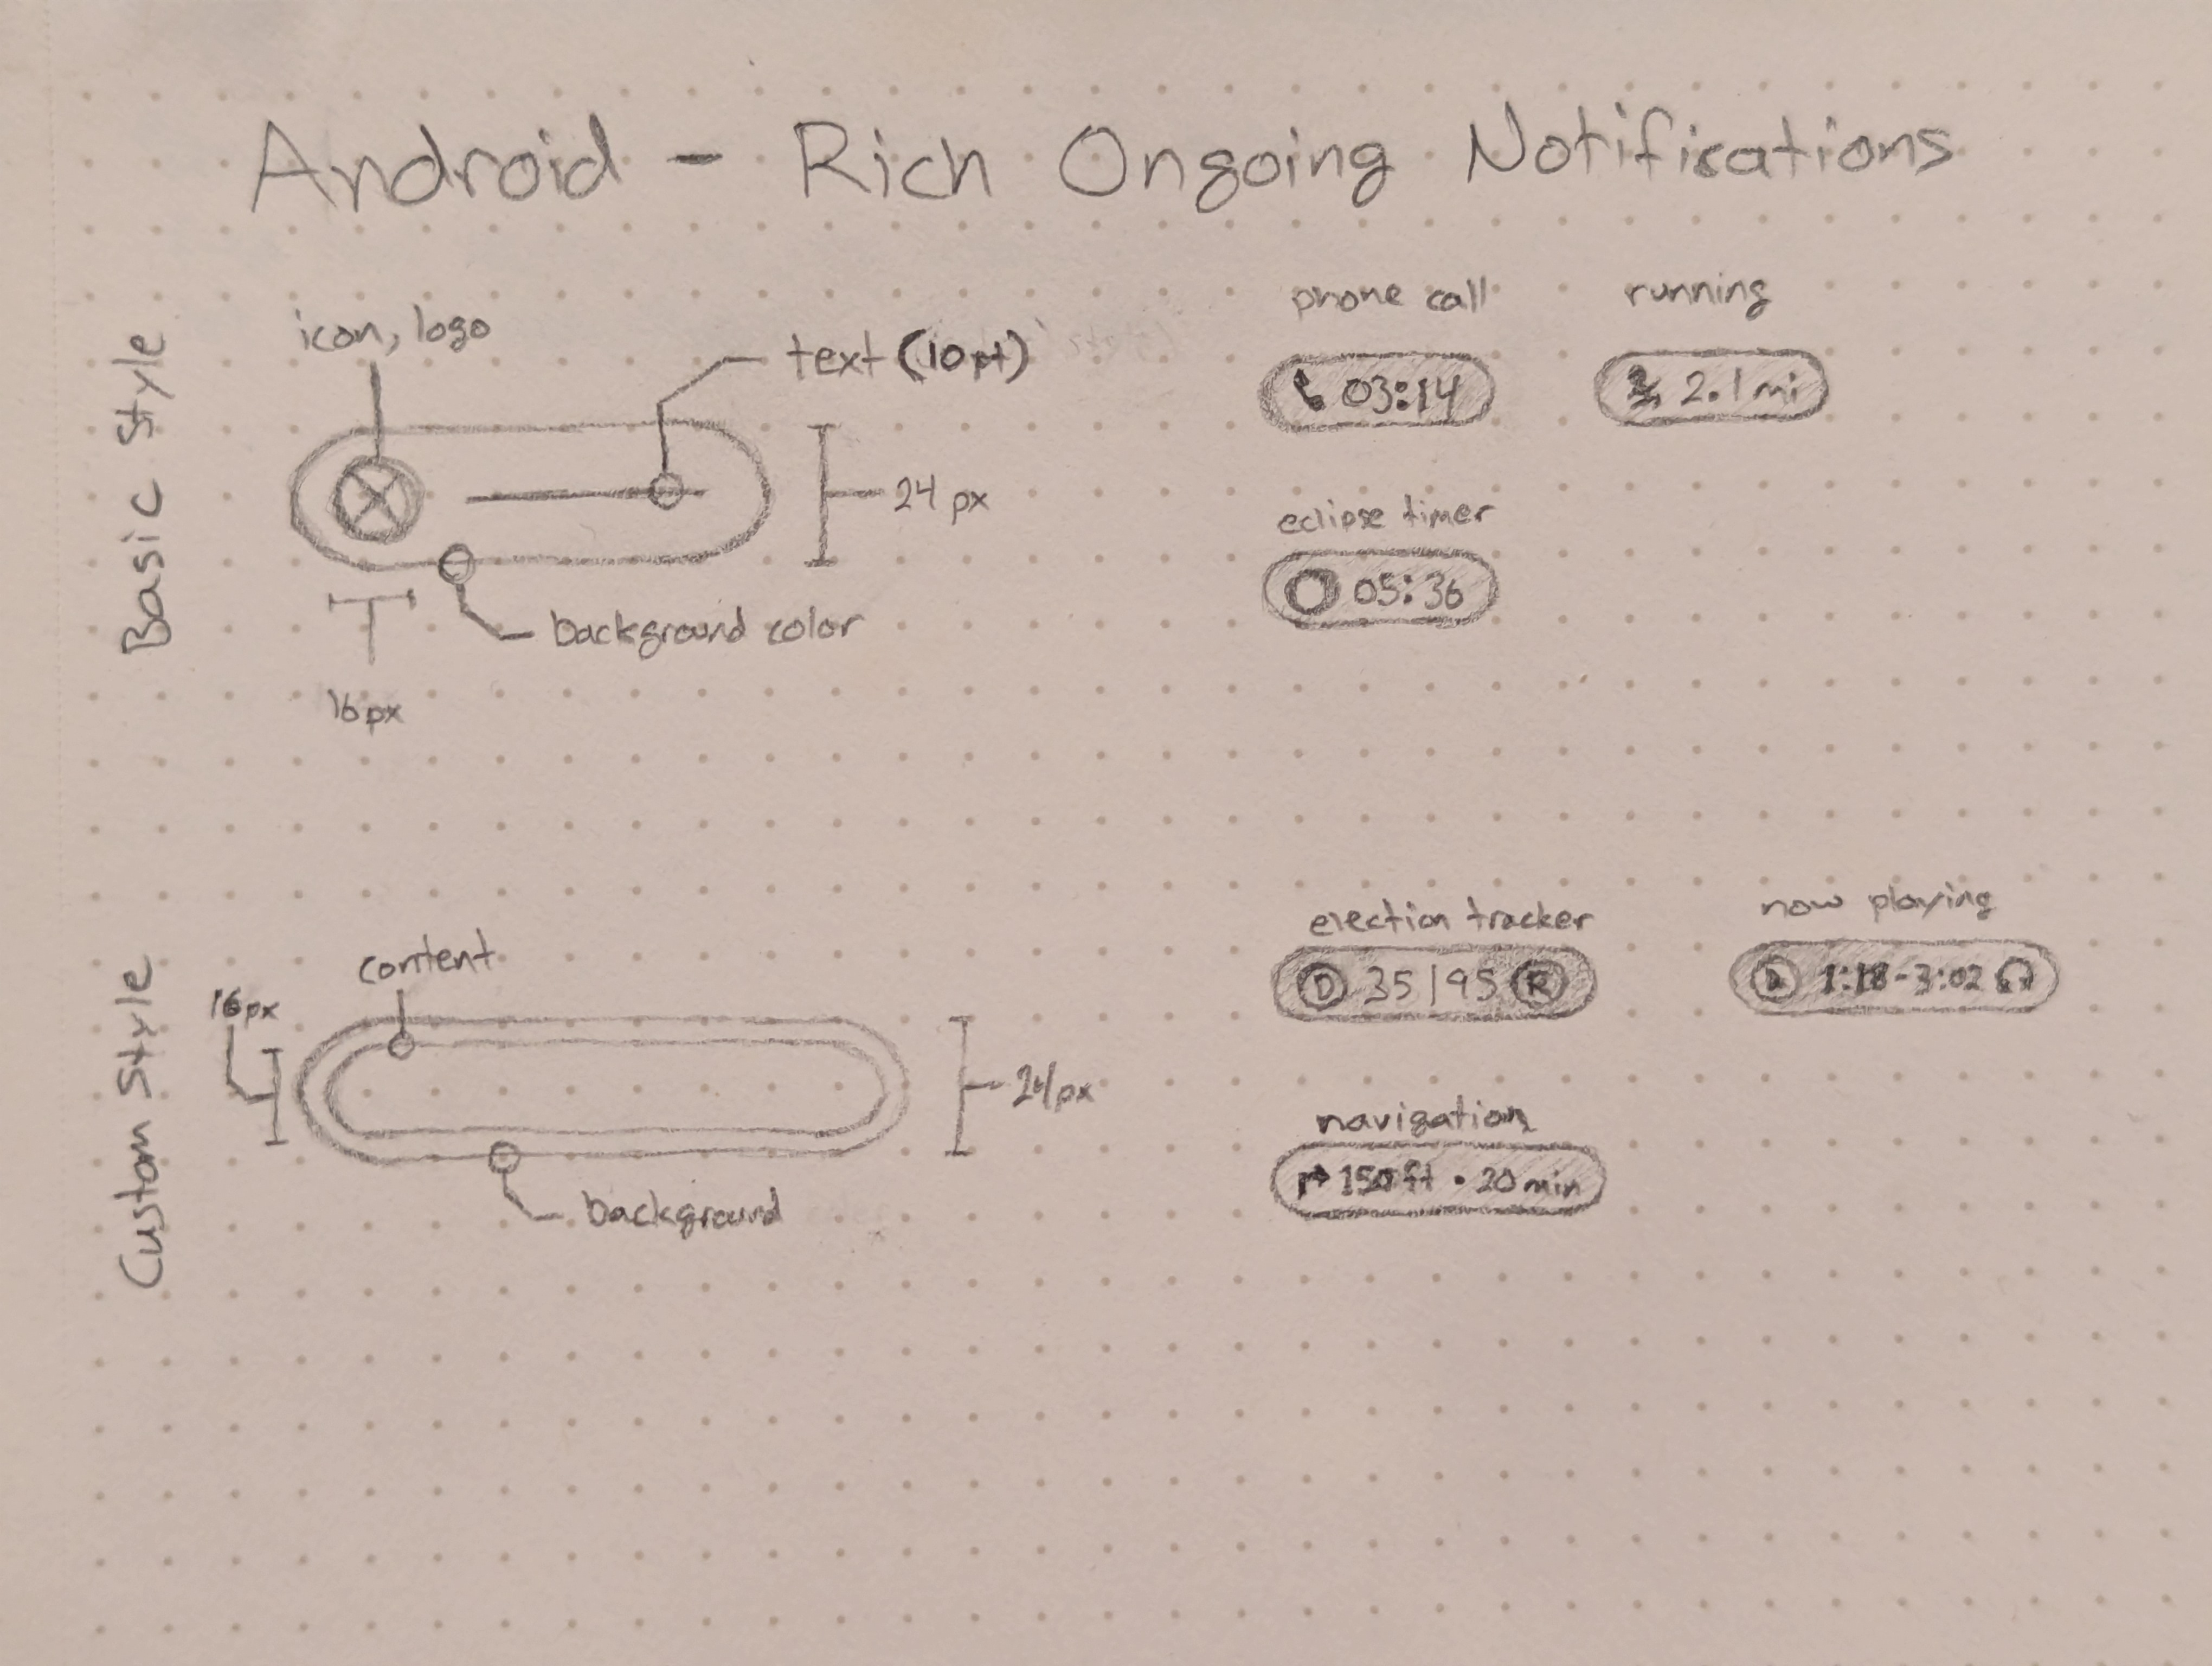 Android - Rich Ongoing Notifications
Basic Style
icon, logo
text (10pt)
24 px
background color
16px
phone call
03:14
running
2.1mi
eclipse timer
05:36
Custom Style
content
16px
24px
background
election tracker
D 35|95 R
now playing
1:18-3:02
navigation
150ft • 20min